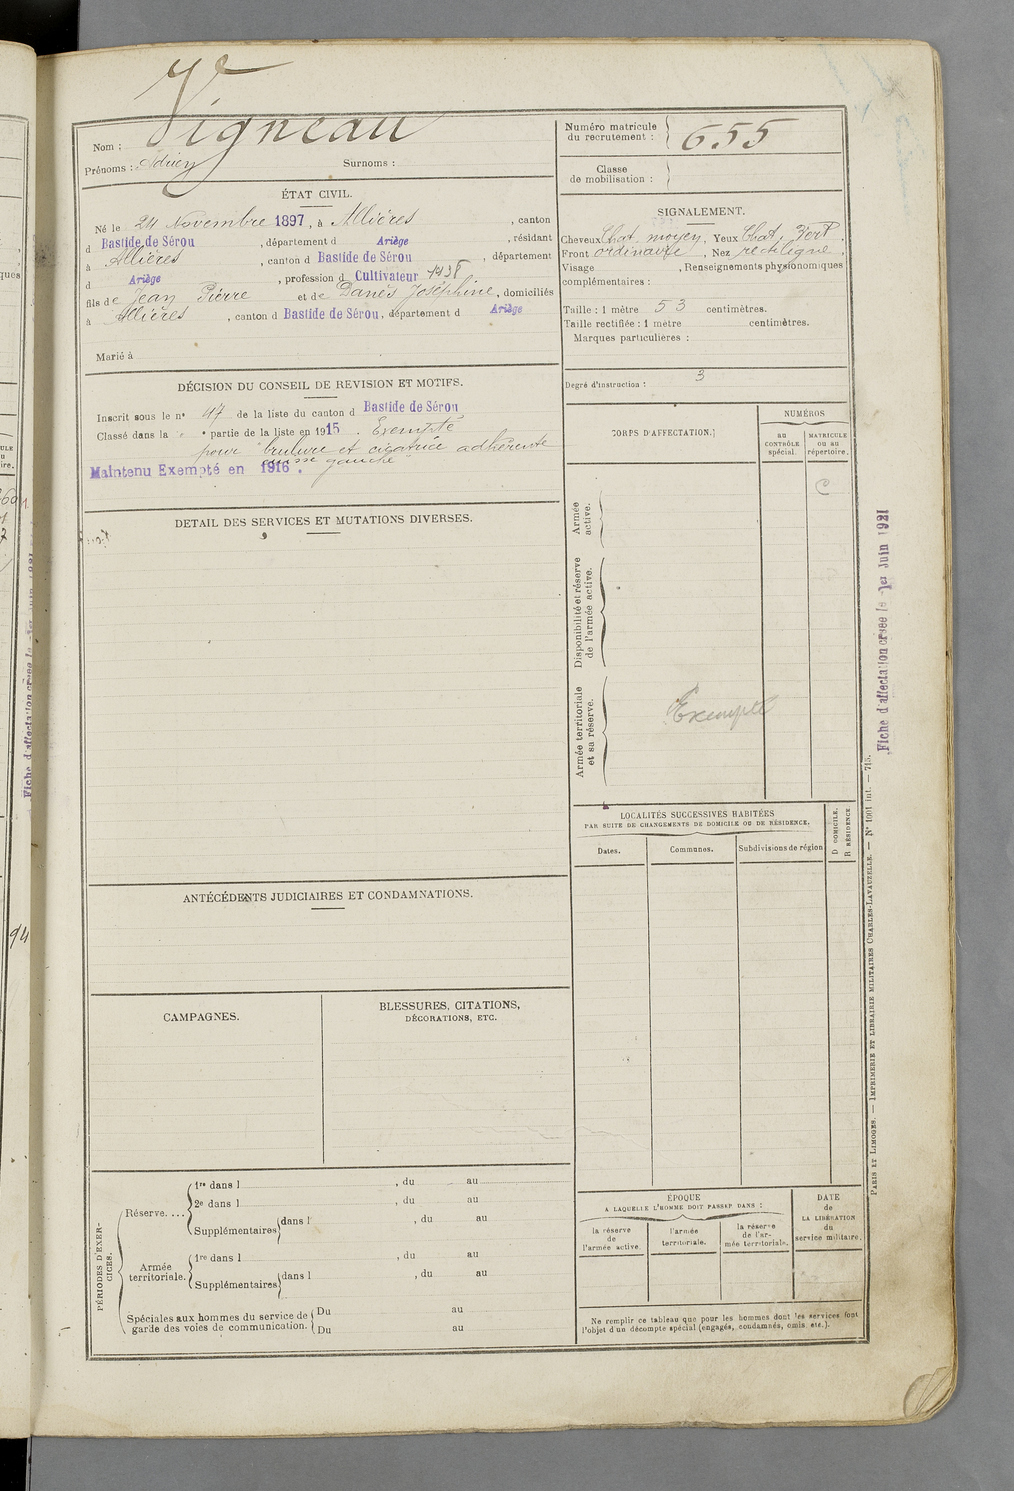 Vigneau
Nom :
Prénoms : Adrien Surnoms :
Numéro matricule du recrutement : 655
Classe de mobilisation :
ÉTAT CIVIL.
Né le 24 Novembre 1897, à Allières, canton
d Bastide de Sérou, département d Ariège, résidant
à Allières, canton d Bastide de Sérou, département
d Ariège, profession d Cultivateur
fils de Jean Pierre et de Danès Joséphine, domiciliés
à Allières, canton d Bastide de Sérou, département d Ariège
Marié à
SIGNALEMENT.
Cheveux Chat. moyen, Yeux Chat. Vert,
Front ordinaire, Nez rectiligne,
Visage , Renseignements physionomiques
complémentaires :
Taille : 1 mètre 53 centimètres.
Taille rectifiée : 1 mètre centimètres.
Marques particulières :
Degré d'instruction : 3
DÉCISION DU CONSEIL DE REVISION ET MOTIFS.
Inscrit sous le n° 47 de la liste du canton d Bastide de Sérou
Classé dans la e partie de la liste en 1915. Exempté
pour brulure et cicatrice adhérente
cuisse gauche
Maintenu Exempté en 1916.
DETAIL DES SERVICES ET MUTATIONS DIVERSES.
CORPS D'AFFECTATION.
NUMÉROS
au CONTRÔLE spécial.
MATRICULE ou au répertoire.
C
Armée active.
Disponibilité et réserve de l'armée active.
Armée territoriale et sa réserve.
Exempté
Fiche d'affectation créée le 1er Juin 1921
LOCALITÉS SUCCESSIVES HABITÉES
PAR SUITE DE CHANGEMENTS DE DOMICILE OU DE RÉSIDENCE.
Dates. Communes. Subdivisions de région
D DOMICILE.
R RÉSIDENCE
ANTÉCÉDENTS JUDICIAIRES ET CONDAMNATIONS.
CAMPAGNES.
BLESSURES, CITATIONS,
DÉCORATIONS, ETC.
PÉRIODES D'EXERCICES.
Réserve....
1re dans l , du au
2e dans l , du au
Supplémentaires dans l , du au
Armée territoriale.
1re dans l , du au
Supplémentaires dans l , du au
Spéciales aux hommes du service de garde des voies de communication.
Du au
Du au
ÉPOQUE
A LAQUELLE L'HOMME DOIT PASSER DANS :
la réserve de l'armée active.
l'armée territoriale.
la réserve de l'armée territoriale.
DATE de LA LIBÉRATION du service militaire.
Ne remplir ce tableau que pour les hommes dont les services font
l'objet d'un décompte spécial (engagés, condamnés, omis, etc.).
PARIS ET LIMOGES. — IMPRIMERIE ET LIBRAIRIE MILITAIRES CHARLES-LAVAUZELLE. — N° 1001 int. — 715.